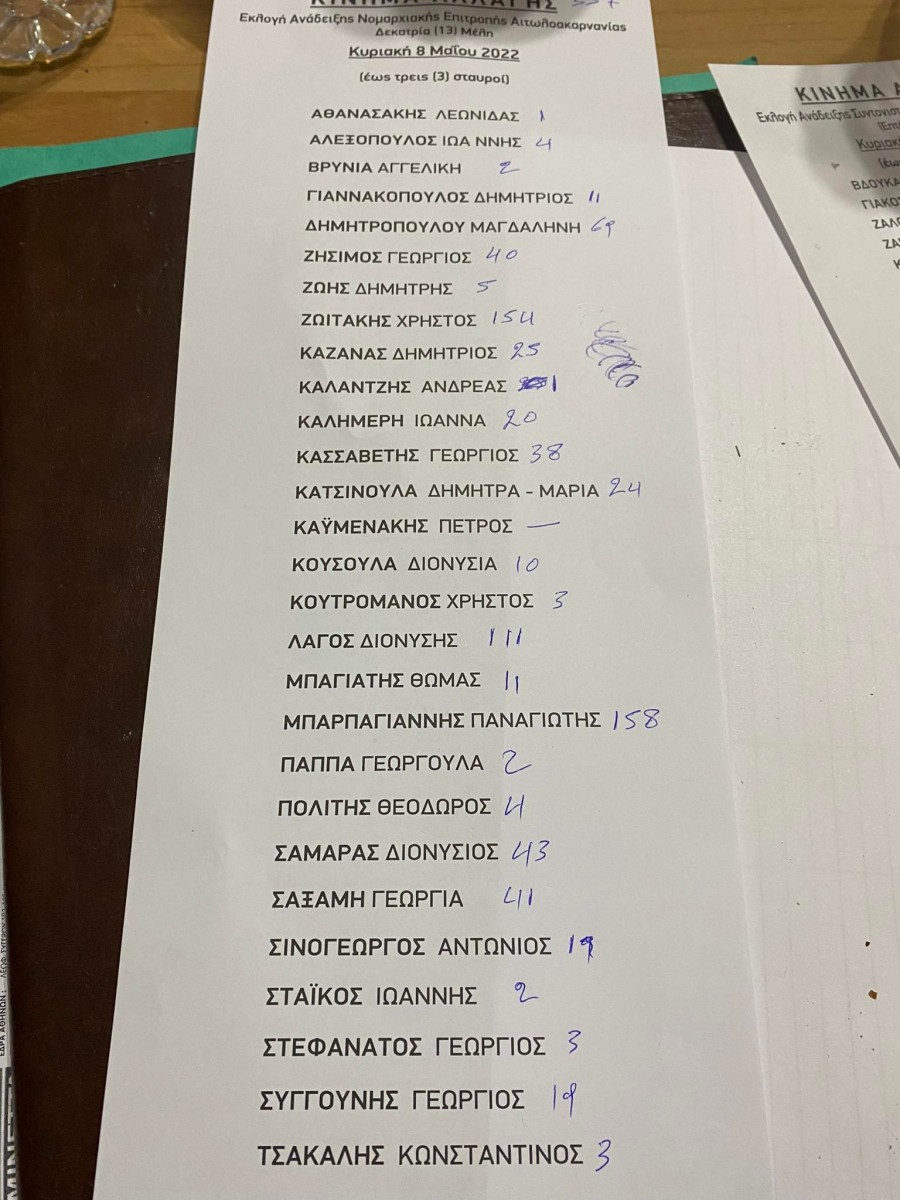 ΚΙΝΗΜΑ ΑΛΛΑΓΗΣ
Εκλογή Ανάδειξης Νομαρχιακής Επιτροπής Αιτωλοακαρνανίας
Δεκατρία (13) Μέλη
Κυριακή 8 Μαΐου 2022
(έως τρεις (3) σταυροί)
ΑΘΑΝΑΣΑΚΗΣ ΛΕΩΝΙΔΑΣ 1
ΑΛΕΞΟΠΟΥΛΟΣ ΙΩΑ ΝΝΗΣ 4
ΒΡΥΝΙΑ ΑΓΓΕΛΙΚΗ 2
ΓΙΑΝΝΑΚΟΠΟΥΛΟΣ ΔΗΜΗΤΡΙΟΣ 11
ΔΗΜΗΤΡΟΠΟΥΛΟΥ ΜΑΓΔΑΛΗΝΗ 69
ΖΗΣΙΜΟΣ ΓΕΩΡΓΙΟΣ 40
ΖΩΗΣ ΔΗΜΗΤΡΗΣ 5
ΖΩΙΤΑΚΗΣ ΧΡΗΣΤΟΣ 154
ΚΑΖΑΝΑΣ ΔΗΜΗΤΡΙΟΣ 25
ΚΑΛΑΝΤΖΗΣ ΑΝΔΡΕΑΣ 1
ΚΑΛΗΜΕΡΗ ΙΩΑΝΝΑ 20
ΚΑΣΣΑΒΕΤΗΣ ΓΕΩΡΓΙΟΣ 38
ΚΑΤΣΙΝΟΥΛΑ ΔΗΜΗΤΡΑ - ΜΑΡΙΑ 24
ΚΑΫΜΕΝΑΚΗΣ ΠΕΤΡΟΣ —
ΚΟΥΣΟΥΛΑ ΔΙΟΝΥΣΙΑ 10
ΚΟΥΤΡΟΜΑΝΟΣ ΧΡΗΣΤΟΣ 3
ΛΑΓΟΣ ΔΙΟΝΥΣΗΣ 111
ΜΠΑΓΙΑΤΗΣ ΘΩΜΑΣ 11
ΜΠΑΡΠΑΓΙΑΝΝΗΣ ΠΑΝΑΓΙΩΤΗΣ 158
ΠΑΠΠΑ ΓΕΩΡΓΟΥΛΑ 2
ΠΟΛΙΤΗΣ ΘΕΟΔΩΡΟΣ 4
ΣΑΜΑΡΑΣ ΔΙΟΝΥΣΙΟΣ 43
ΣΑΞΑΜΗ ΓΕΩΡΓΙΑ 41
ΣΙΝΟΓΕΩΡΓΟΣ ΑΝΤΩΝΙΟΣ 19
ΣΤΑΪΚΟΣ ΙΩΑΝΝΗΣ 2
ΣΤΕΦΑΝΑΤΟΣ ΓΕΩΡΓΙΟΣ 3
ΣΥΓΓΟΥΝΗΣ ΓΕΩΡΓΙΟΣ 19
ΤΣΑΚΑΛΗΣ ΚΩΝΣΤΑΝΤΙΝΟΣ 3
ΚΙΝΗΜΑ
Εκλογή Ανάδειξης
ΕΔΡΑ ΑΘΗΝΩΝ: